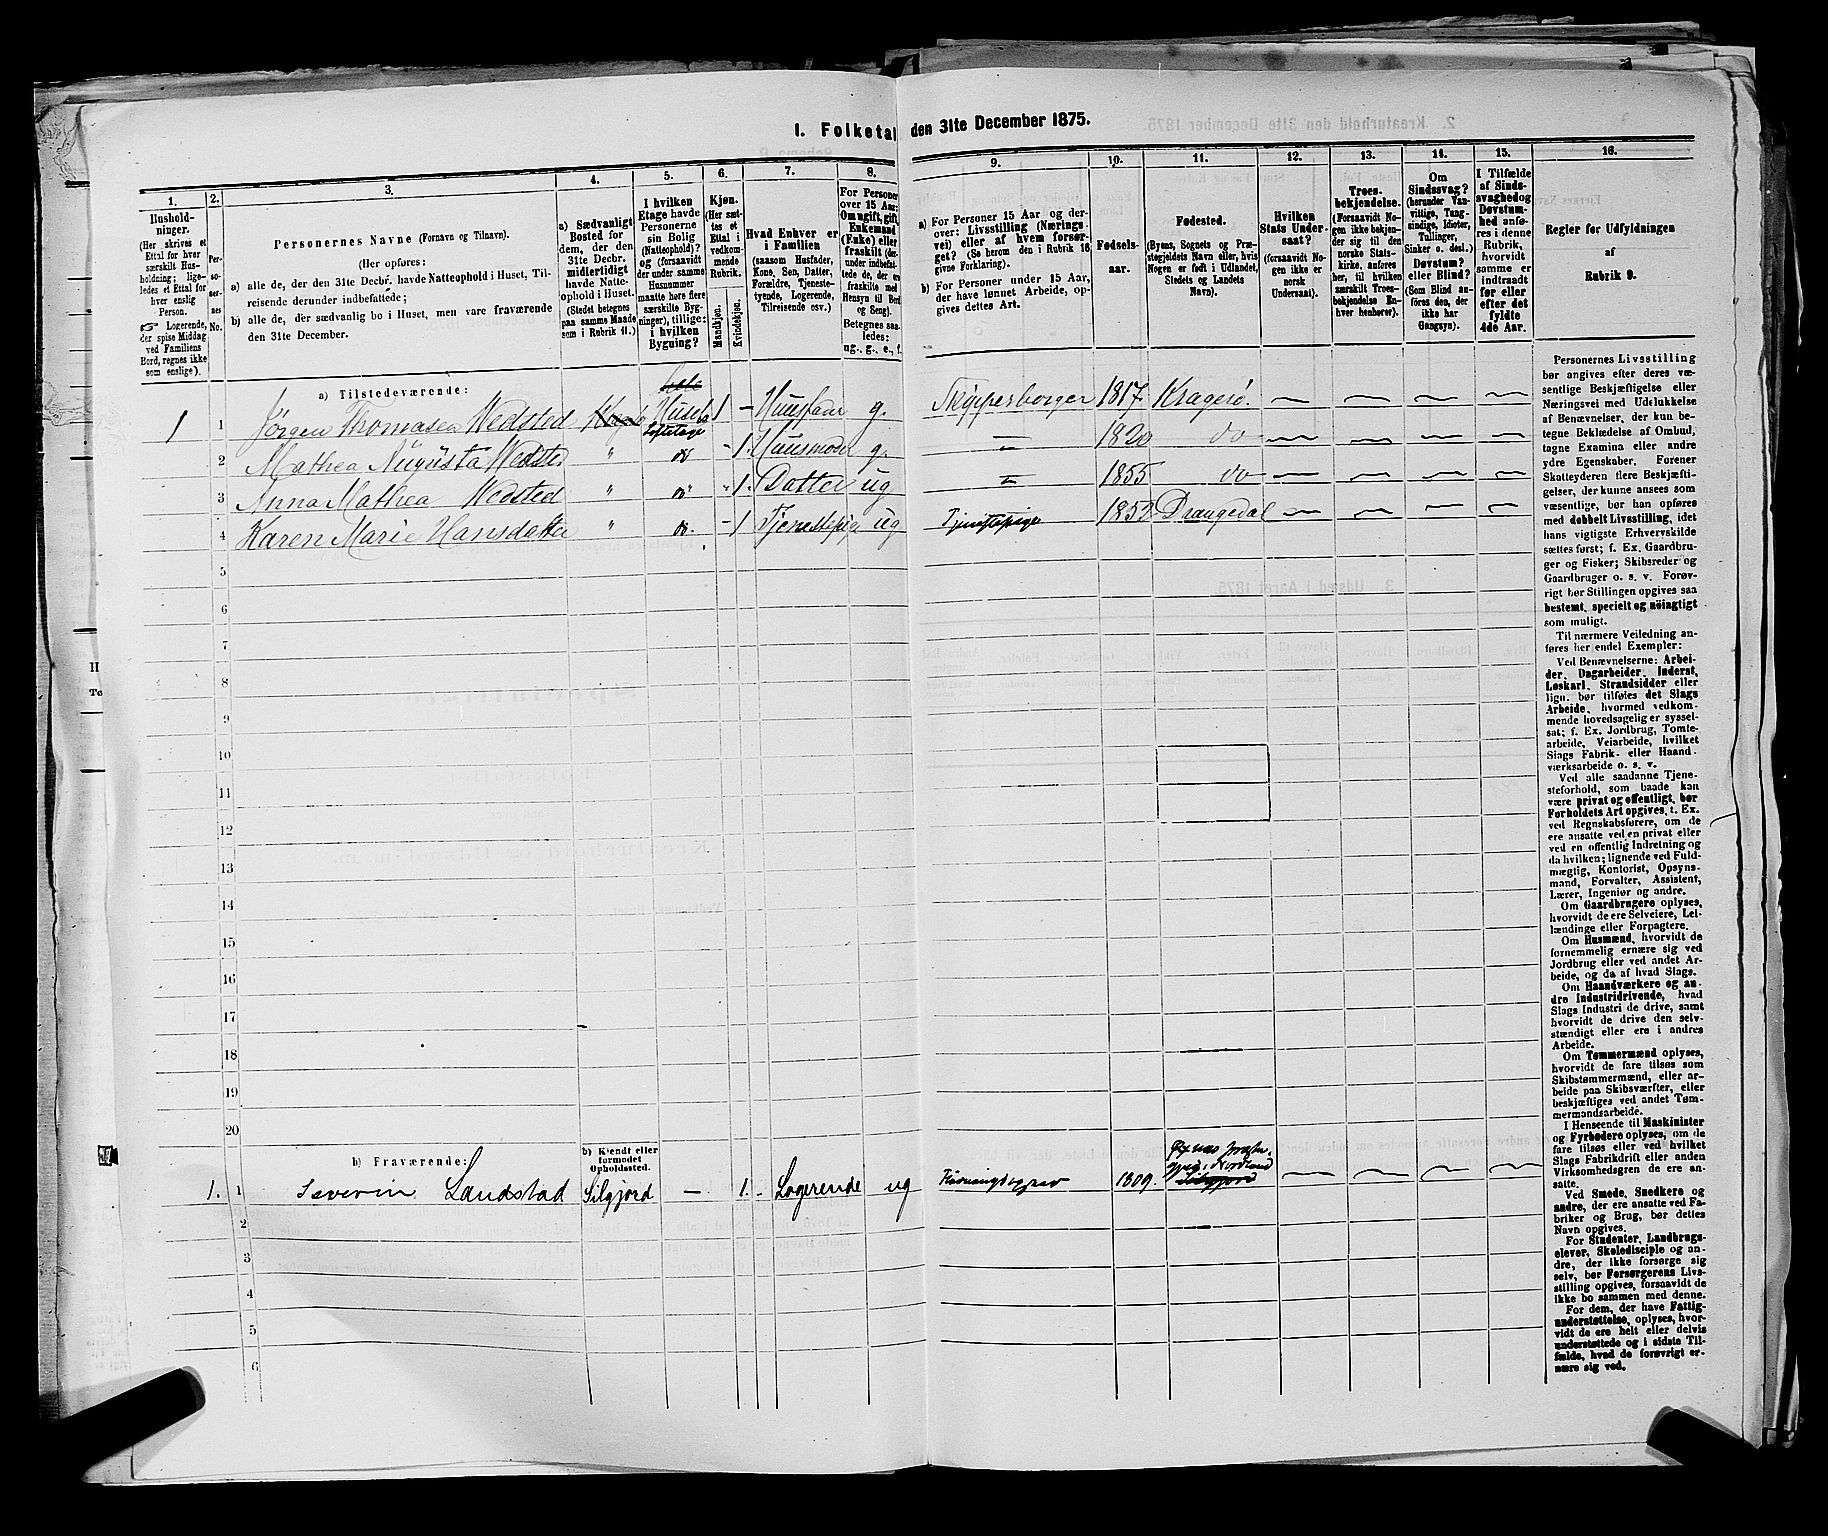 1. Folketal den 31te December 1875.
1.
Husholdninger.
(Her skrives et
Ettal for hver
særskilt Husholdning; ligeledes
et Ettal for
hver enslig
Person.
☞ Logerende,
der spise Middag
ved Familiens
Bord, regnes ikke
som enslige).
2.
Personernes
No.
3.
Personernes Navne (Fornavn og Tilnavn).
(Her opføres:
a) alle de, der den 31te Decbr. havde Natteophold i Huset, Tilreisende
derunder indbefattede;
b) alle de, der sædvanlig bo i Huset, men vare fraværende
den 31te December.
4.
a) Sædvanligt
Bosted for
dem, der den
31te Decbr.
midlertidigt
havde Natteophold
i Huset.
(Stedet betegnes
paa samme Maade
som i Rubrik 11.)
5.
I hvilken
Etage havde
Personerne
sin Bolig
(Natteophold)?
og (forsaavidt
der under samme
Husnummer
maatte høre flere
særskilte Bygninger),
tillige:
i hvilken
Bygning?
6.
Kjøn.
(Her sættes
et
Ettal i
vedkommende
Rubrik.
Mandkjøn.
Kvindekjøn.
7.
Hvad Enhver er
i Familien
(saasom Husfader,
Kone, Søn, Datter,
Forældre, Tjenestetyende,
Logerende,
Tilreisende osv.)
8.
For Personer
over 15 Aar:
Om ugift, gift,
Enkemand
(Enke) eller
fraskilt
Hensyn til Bord
og Seng).
Betegnes saaledes:
ug., g., e., f.
9.
a) For Personer 15 Aar og derover:
Livsstilling (Næringsvei)
eller af hvem forsørget?
(Se herom den i Rubrik 16
givne Forklaring).
b) For Personer under 15 Aar,
der have lønnet Arbeide, opgives
dettes Art.
10.
Fødselsaar.
11.
Fødested.
(Byens, Sognets og Præstegjeldets
Navn eller, hvis
Nogen er født i Udlandet,
Stedets og Landets
Navn).
12.
Hvilken
Stats Undersaat?
(forsaavidt Nogen
ikke er
norsk
Undersaat).
13.
Troesbekjendelse.
(Forsaavidt Nogen
ikke bekjender
sig til den
norske Statskirke,
anføres
her, til hvilket
særskilt Troesbekjendelse
Enhver
henhører).
14.
Om
Sindssvag?
(herunder Vanvittige,
Tungsindige,
Idioter,
Tullinger,
Sinker o. desl.)
Døvstum?
eller Blind?
(Som Blind anføres
den, der
ikke har
Gangsyn).
15.
I Tilfælde
af Sindssvaghed
og
Døvstumhed
anføres
i denne
Rubrik,
hvorvidt
samme er
indtraadt
før eller
efter det
fyldte
4de Aar.
16.
Regler for Udfyldningen
af
Rubrik 9.
a) Tilstedeværende:
1 1 Jørgen Thomasen Wedsted 1 – Huusfader g. Skipperborger 1817 Kragerø. – – – –
2 Mathea Augusta Wedsted " do – 1. Huusmoder g. – 1820 do – – – –
3 Anna Mathea Wedsted " do " 1. Datter ug 1855 do – – – –
4 Karen Marie Hansdatter " do. – 1 Tjenestepige ug Tjenestepige 1853 Drangedal – – – –
5
6
7
8
9
10
11
12
13
14
15
16
17
18
19
20
b) Fraværende:
b) Kjendt eller
formodet
Opholdssted.
1. 1 Severin Landstad Silgjord – 1. – Logerende ug 1809. – – – –
2
3
4
5
6
Personernes Livsstilling
bør angives efter deres væsentlige
Beskjæftigelse eller
Næringsvei med Udelukkelse
af Benævnelser, der kun betegne
Beklædelse af Ombud,
tagne Examina eller andre
ydre Egenskaber. Forener
Skatteyderen flere Beskjæftigelser,
der kunne ansees som
væsentlige, bør han opføres
med dobbelt Livsstilling, idet
hans vigtigste Erhvervskilde
sættes først; f. Ex. Gaardbruger
og Fisker; Skibsreder og
Gaardbruger o. s. v. Forøvrigt
bør Stillingen opgives saa
bestemt, specielt og nøiagtigt
som muligt.
Til nærmere Veiledning anføres
her endel Exempler:
Ved Benævnelserne: Arbeider,
Dagarbeider, Inderst,
Løskarl, Strandsidder eller
lign. bør tilføies det Slags
Arbeide, hvormed vedkommende
hovedsagelig er sysselsat;
f. Ex. Jordbrug, Tomtearbeide,
Veiarbeide, hvilket
Slags Fabrik- eller Haandværksarbeide
o. s. v.
Ved alle saadanne Tjenesteforhold,
som baade kan
være privat og offentligt, bør
Forholdets Art opgives, t. Ex.
ved Regnskabsførere, om de
ere ansatte ved en privat eller
ved en offentlig Indretning og
da hvilken; lignende ved Fuldmægtig,
Kontorist, Opsynsmand,
Forvalter, Assistent,
Lærer, Ingeniør og andre.
Om Gaardbrugere oplyses,
hvorvidt de ere Selveiere, Leilændinge
eller Forpagtere.
Om Husmænd, hvorvidt de
fornemmelig ernære sig ved
Jordbrug eller ved andet Arbeide,
og da af hvad Slags.
Om Haandværkere og andre
Industridrivende, hvad
Slags Industri de drive, samt
hvorvidt de drive den selvstændigt
eller ere i andres
Arbeide.
Om Tømmermænd oplyses,
hvorvidt de fare tilsøs som
Skibstømmermænd, eller arbeide
paa Skibsværfter, eller
beskjæftiges ved andet Tømmermandsarbeide.
I Henseende til Maskinister
og Fyrbødere oplyses, om de
fare tilsøs eller ved hvilket
Slags Fabrikdrift eller anden
Virksomhedsgren de ere ansatte.
Ved Smede, Snedkere og
andre, der ere ansatte ved Fabriker
og Brug, bør dettes
Navn opgives.
For Studenter, Landbrugselever,
Skoledisciple og andre,
der ikke forsørge sig
selv, bør Forsørgerens Livsstilling
opgives, forsaavidt de
ikke bo sammen med denne.
For dem, der have Fattigunderstøttelse,
oplyses, hvorvidt
de ere helt eller delvis
understøttede og i sidste Tilfælde,
hvad de forøvrigt ernære
sig ved.